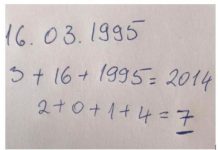 16. 03. 1995
3 + 16 + 1995 = 2014
2 + 0 + 1 + 4 = 7